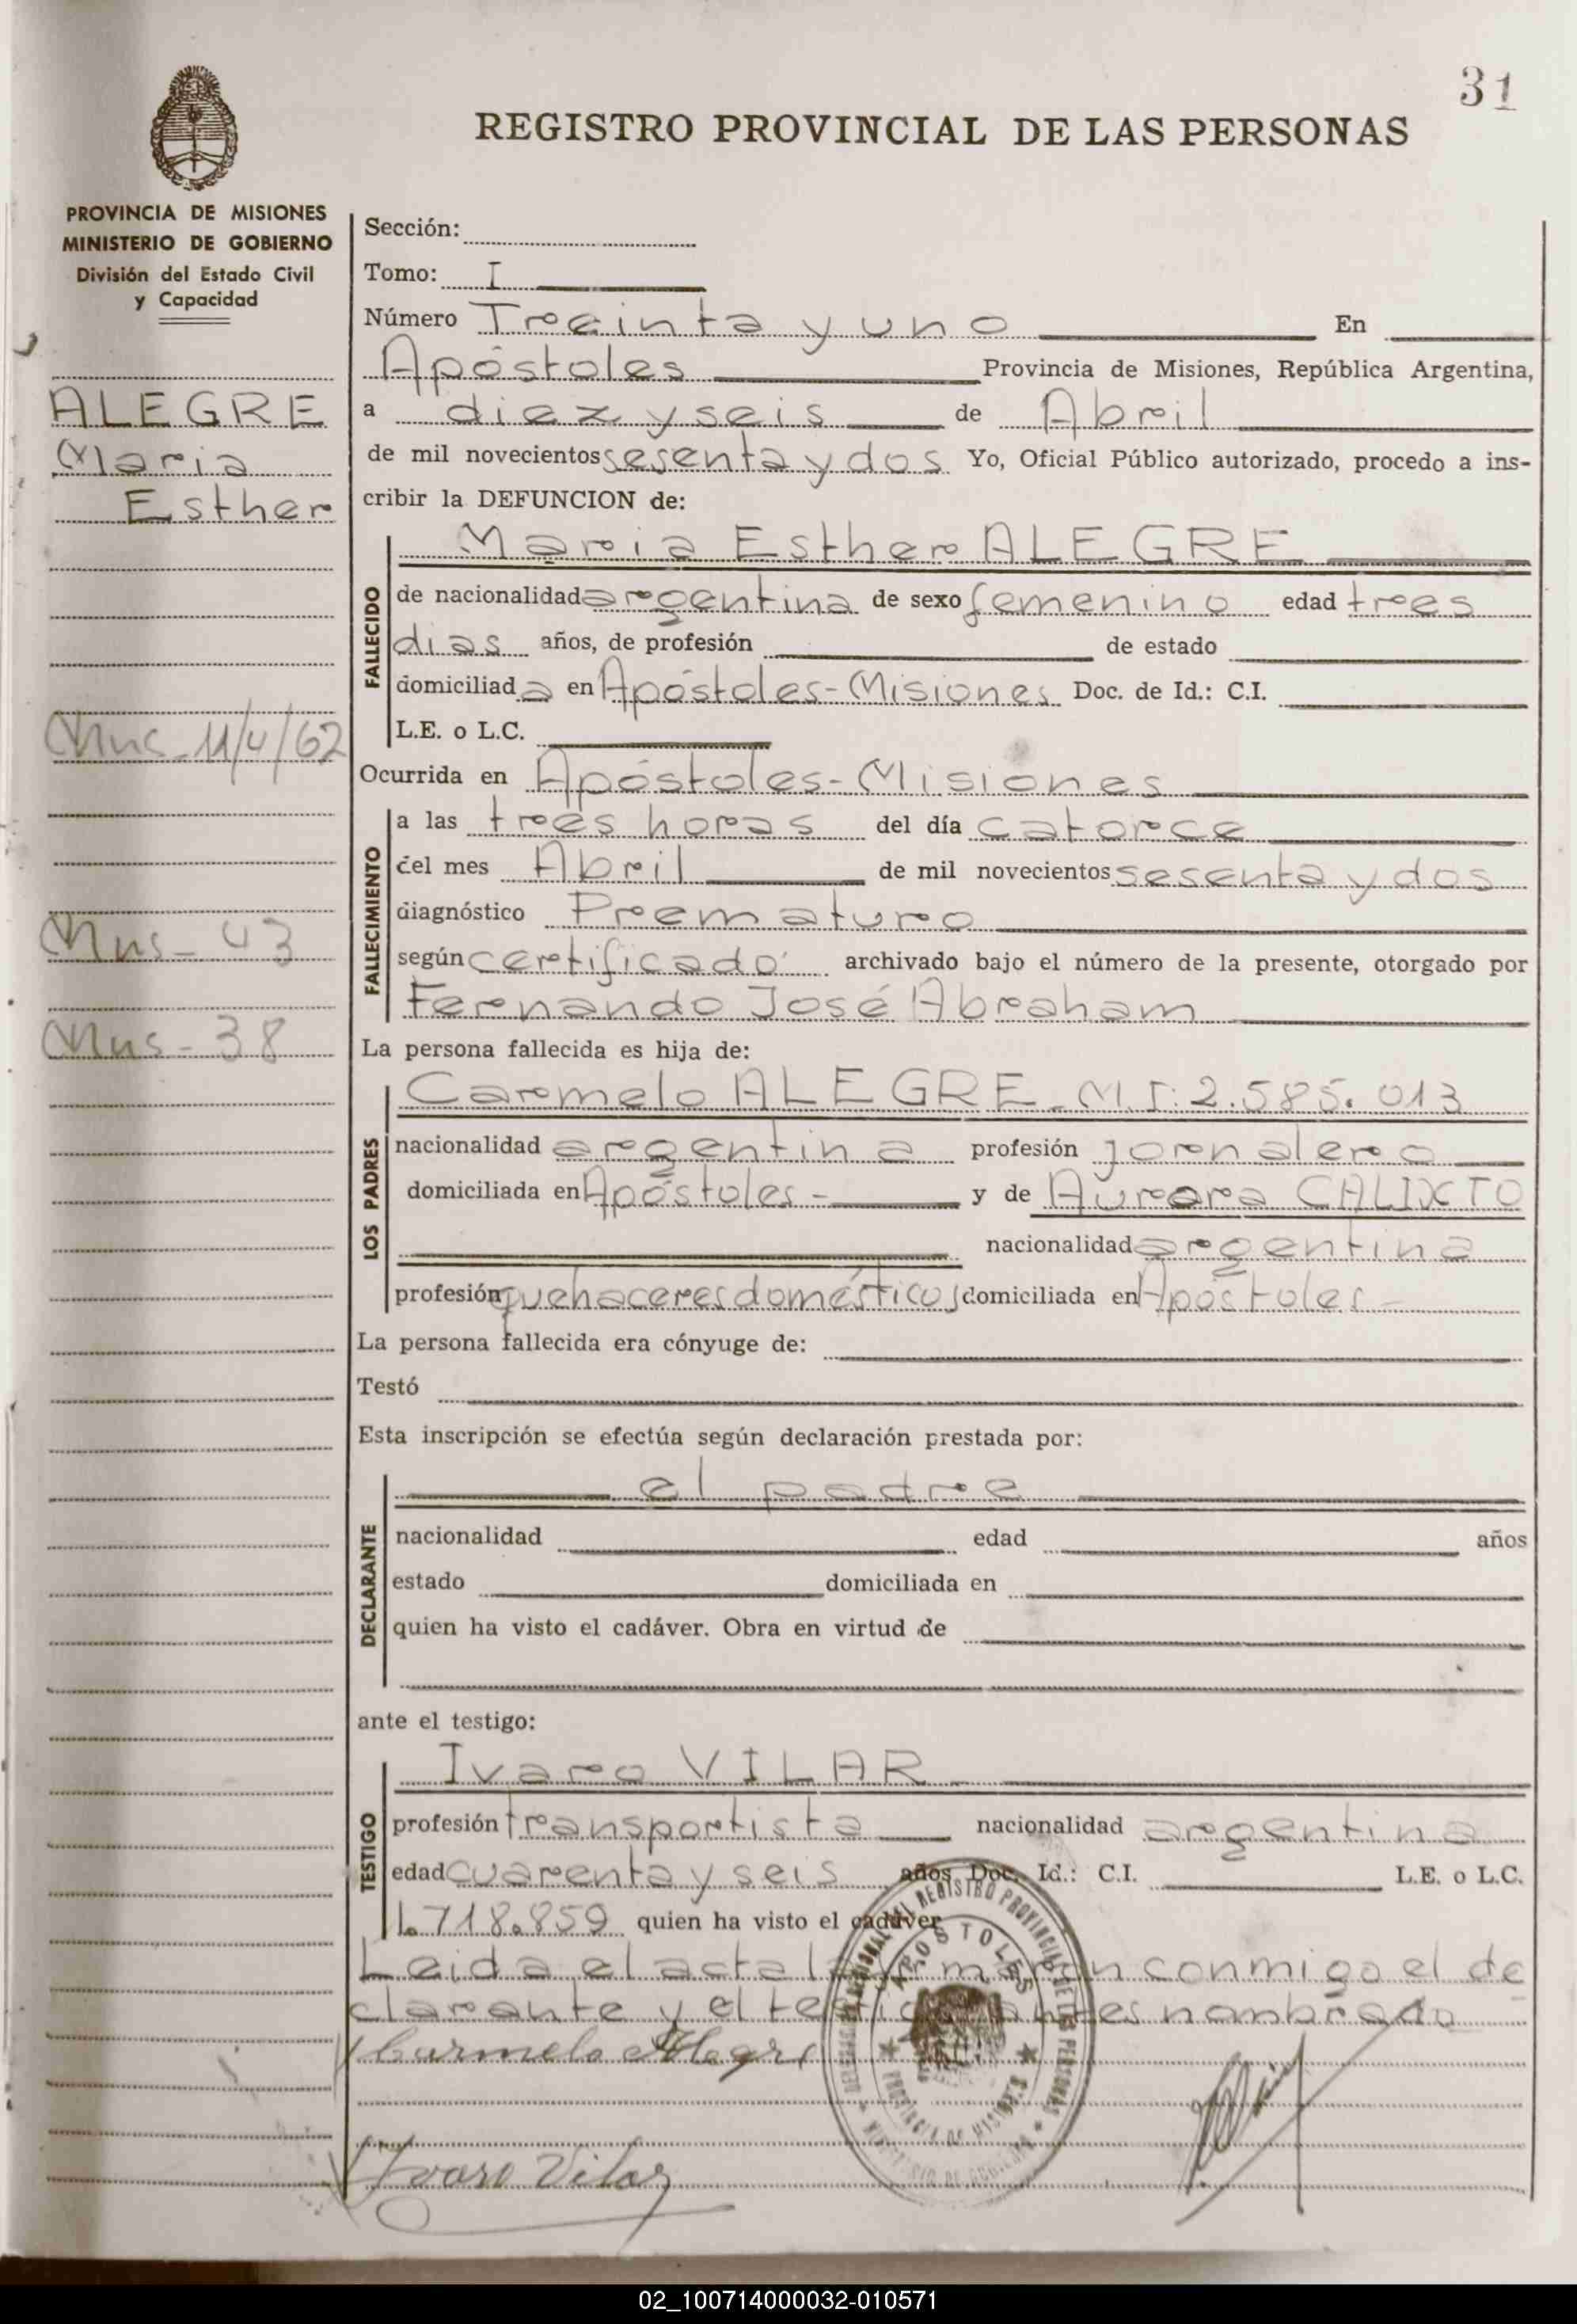 31
REGISTRO PROVINCIAL DE LAS PERSONAS
PROVINCIA DE MISIONES
MINISTERIO DE GOBIERNO
División del Estado Civil
y Capacidad
ALEGRE
Maria
Esther
Mns - 11/4/62
Mns - 43
Mns - 38
Sección:
Tomo: I
Número Treinta y uno En
Apóstoles Provincia de Misiones, República Argentina,
a diez y seis de Abril
de mil novecientos sesenta y dos Yo, Oficial Público autorizado, procedo a ins-
cribir la DEFUNCION de:
Maria Esther ALEGRE
FALLECIDO
de nacionalidad argentina de sexo femenino edad tres
dias años, de profesión de estado
domiciliada en Apóstoles-Misiones Doc. de Id.: C.I.
L.E. o L.C.
Ocurrida en Apóstoles-Misiones
FALLECIMIENTO
a las tres horas del día catorce
del mes Abril de mil novecientos sesenta y dos
diagnóstico Prematuro
según certificado archivado bajo el número de la presente, otorgado por
Fernando José Abraham
La persona fallecida es hija de:
LOS PADRES
Carmelo ALEGRE - M.I: 2.585.013
nacionalidad argentina profesión jornalero
domiciliada en Apóstoles - y de Aurora CALIXTO
nacionalidad argentina
profesión quehaceres domésticos domiciliada en Apóstoles -
La persona fallecida era cónyuge de:
Testó
Esta inscripción se efectúa según declaración prestada por:
DECLARANTE
el padre
nacionalidad edad años
estado domiciliada en
quien ha visto el cadáver. Obra en virtud de
ante el testigo:
TESTIGO
Ivaro VILAR
profesión transportista nacionalidad argentina
edad cuarenta y seis años Doc. Id.: C.I. L.E. o L.C.
1.718.859 quien ha visto el cadáver
Leida el acta la firman conmigo el de
clarante y el testigo antes nombrado
Carmelo Alegre
Ivaro Vilar
REGISTRO PROVINCIAL DE LAS PERSONAS
APOSTOLES
PROVINCIA DE MISIONES
MINISTERIO DE GOBIERNO
02_100714000032-010571